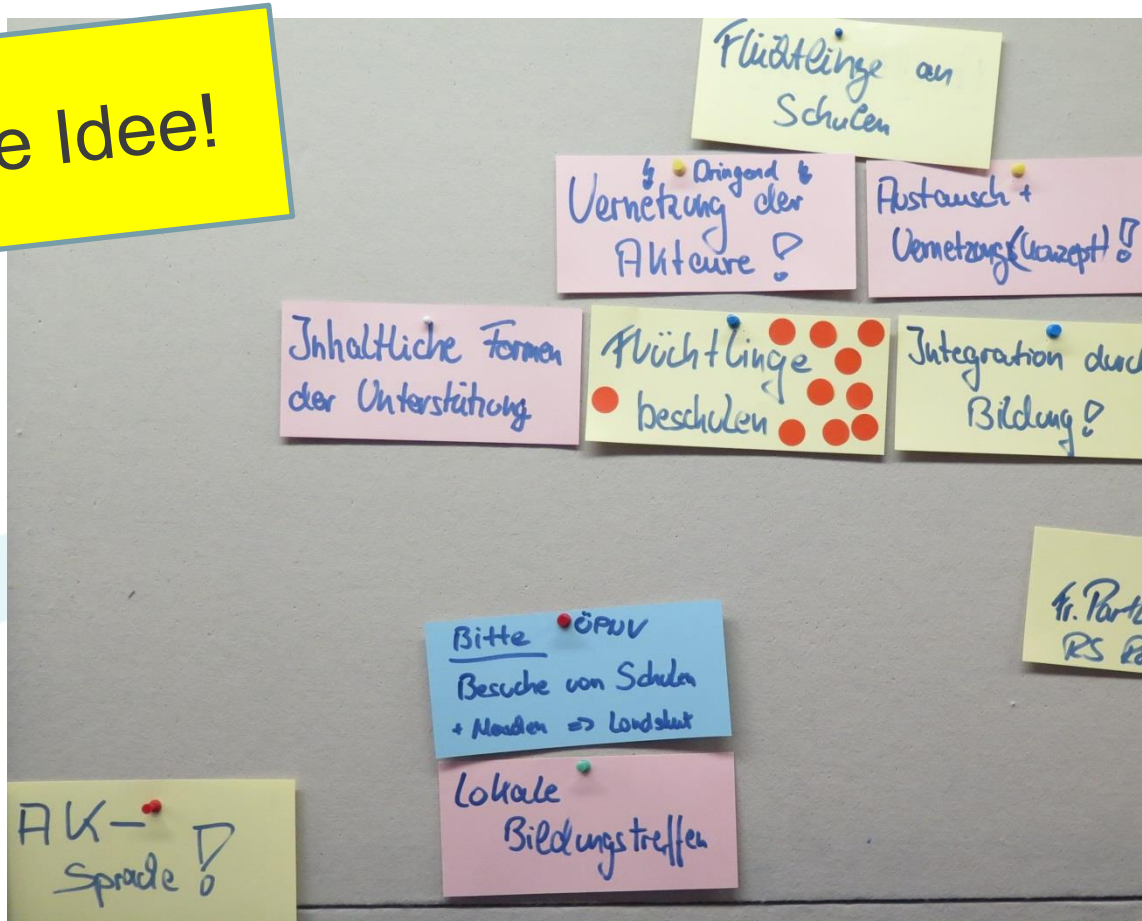 e Idee!
Flüchtlinge an
Schulen
Dringend
Vernetzung der
Akteure!
Austausch +
Vernetzung(skonzept)!
Inhaltliche Formen
der Unterstützung
Flüchtlinge
beschulen
Integration durch
Bildung!
Bitte ÖPNV
Besuche von Schulen
+ => Landshut
Fr.
RS
Lokale
Bildungstreffen
AK-
Sprache!